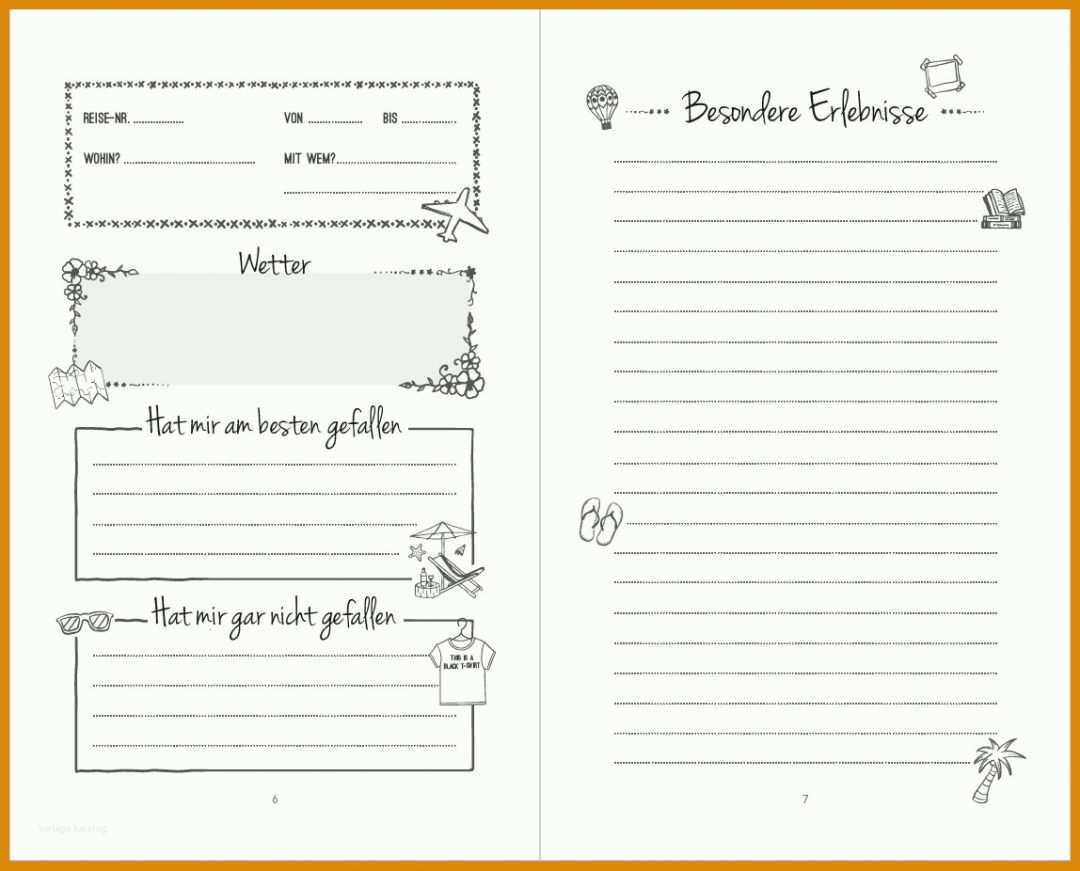 REISE-NR. ............... VON ................ BIS ................
WOHIN? ....................................... MIT WEM? ...................................
Wetter
Hat mir am besten gefallen
Hat mir gar nicht gefallen
THIS IS A
BLACK T-SHIRT
6
Besondere Erlebnisse
7